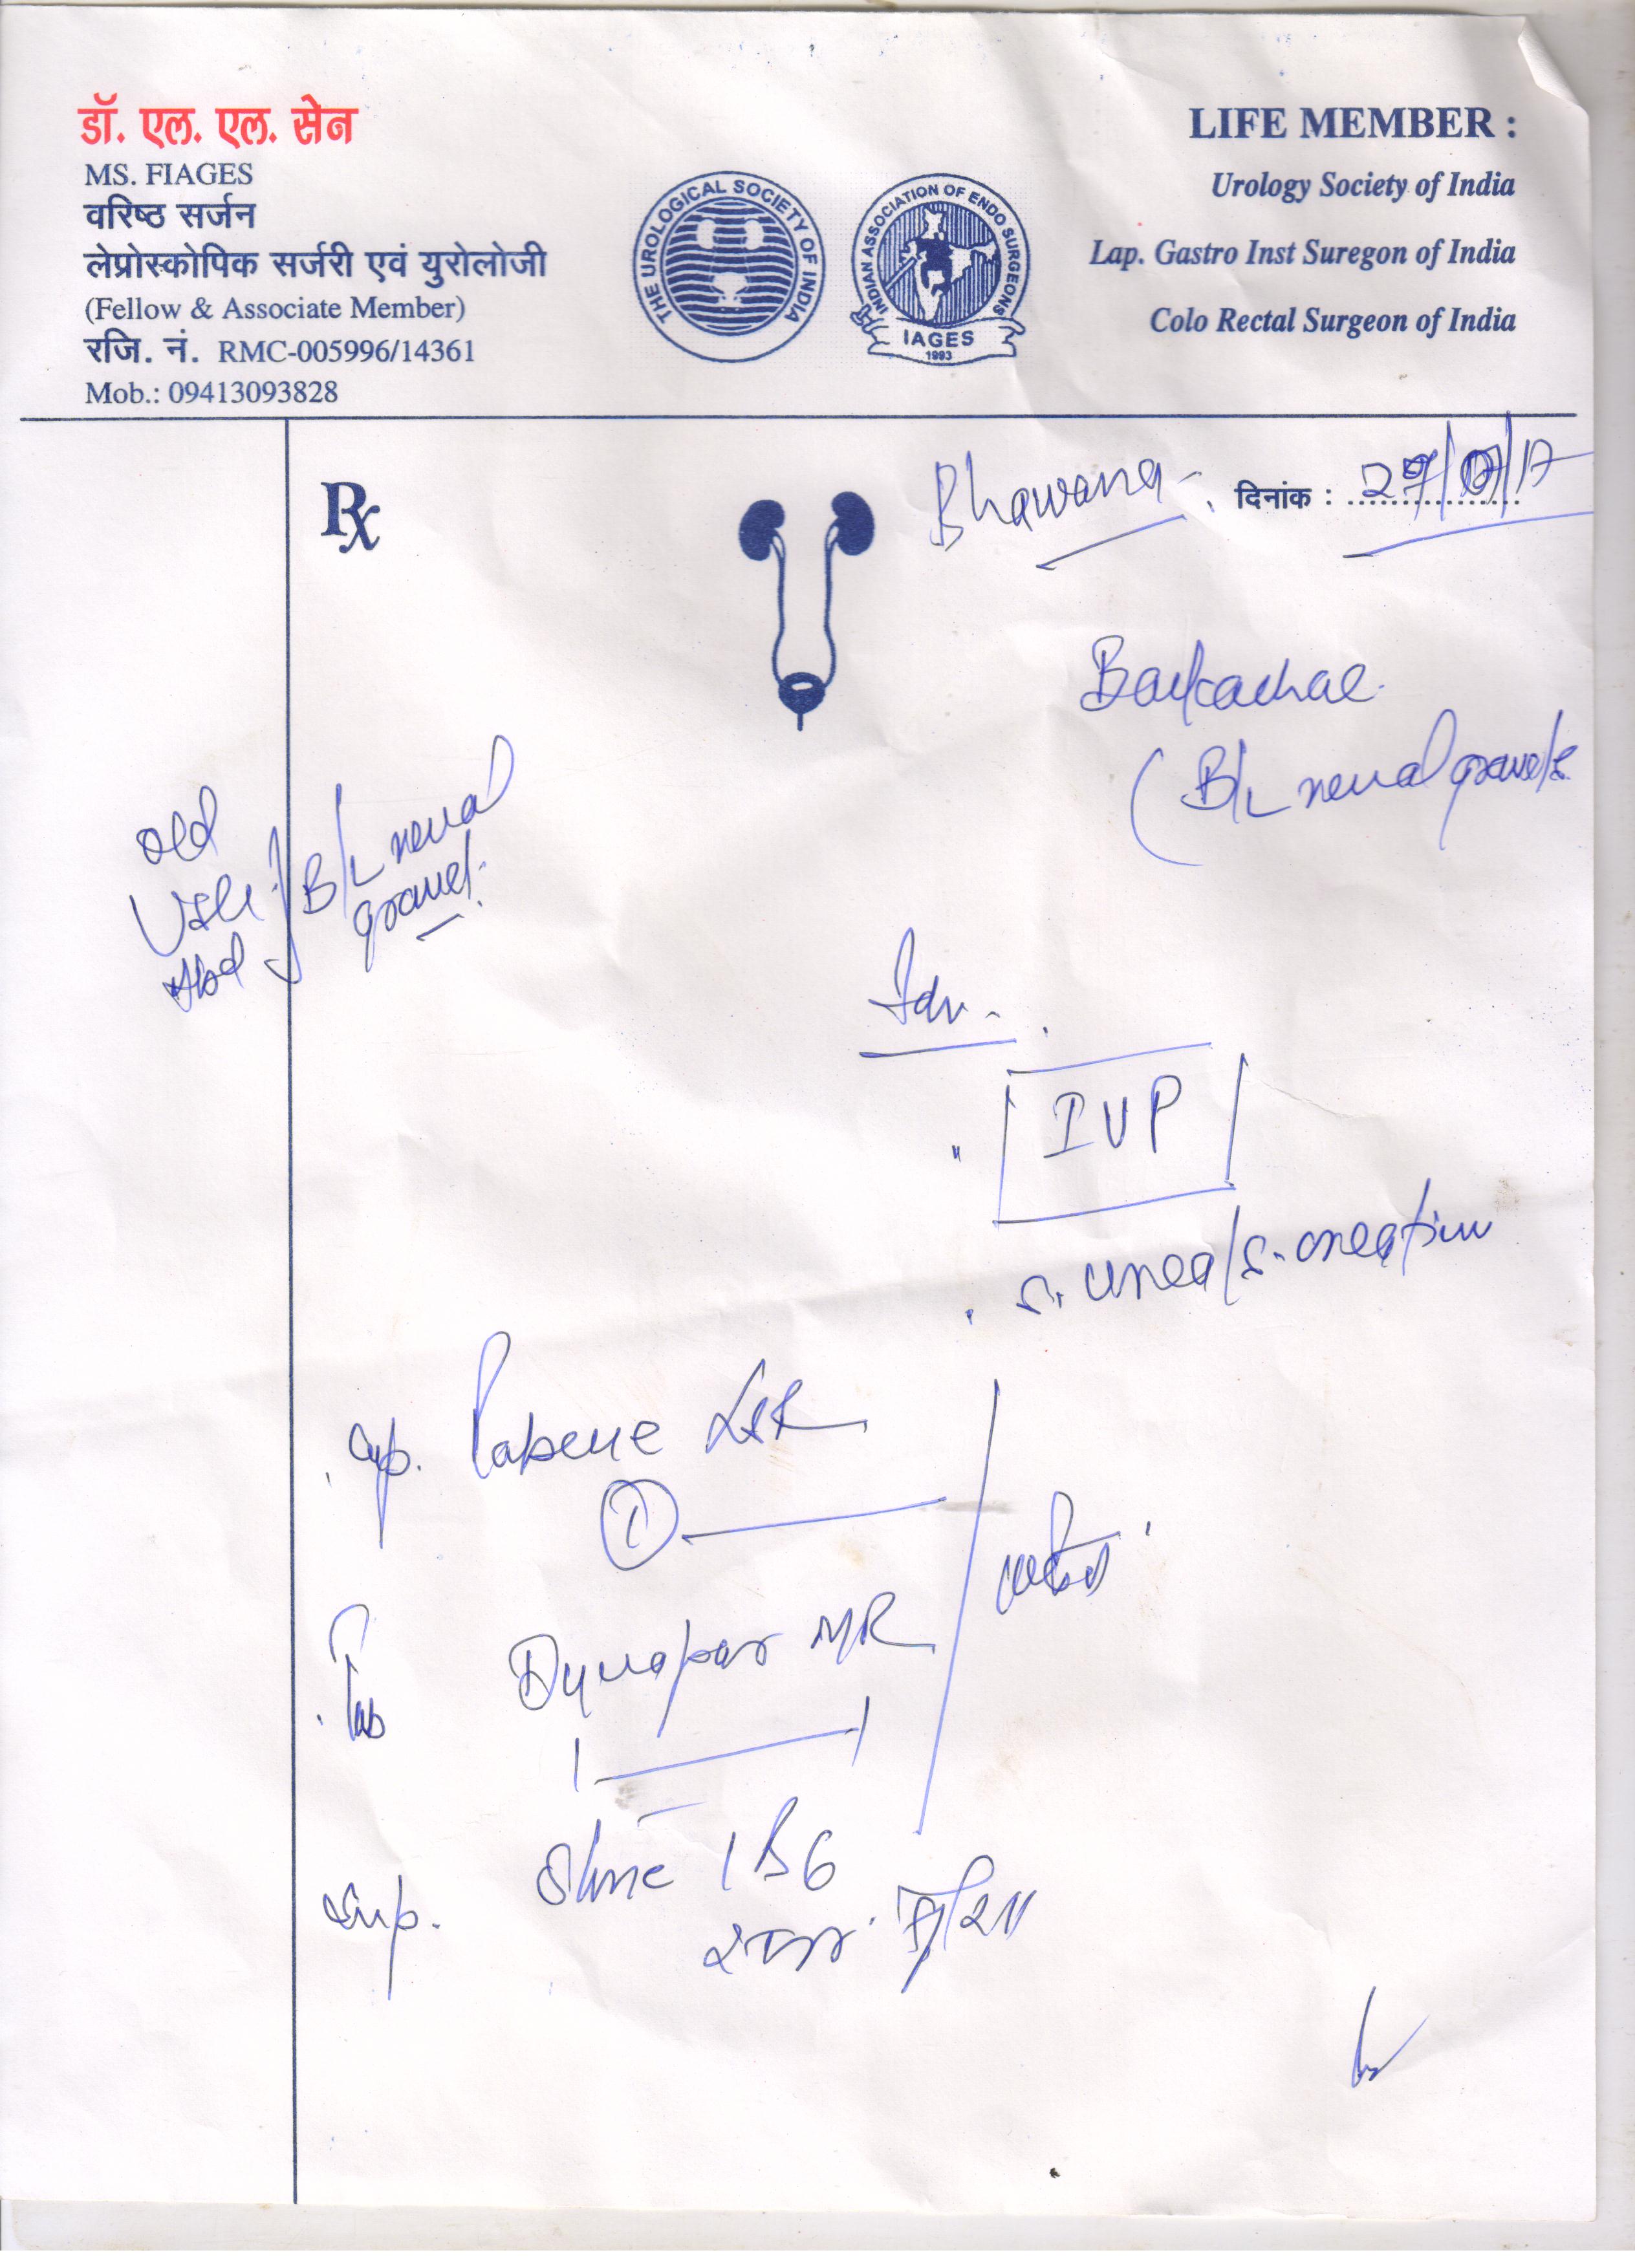 डॉ. एल. एल. सेन
MS. FIAGES
वरिष्ठ सर्जन
लेप्रोस्कोपिक सर्जरी एवं युरोलोजी
(Fellow & Associate Member)
रजि. नं. RMC-005996/14361
Mob.: 09413093828
THE UROLOGICAL SOCIETY OF INDIA
INDIAN ASSOCIATION OF ENDO SURGEONS
IAGES
1993
LIFE MEMBER :
Urology Society of India
Lap. Gastro Inst Suregon of India
Colo Rectal Surgeon of India
Rx
Bhawana
दिनांक :
(B/L renal gravels
old
B/L renal
gravel
Adv
IVP
S. urea/S. creatin
cap.
①
Tab Dynapar MR
Syp.
1 B6